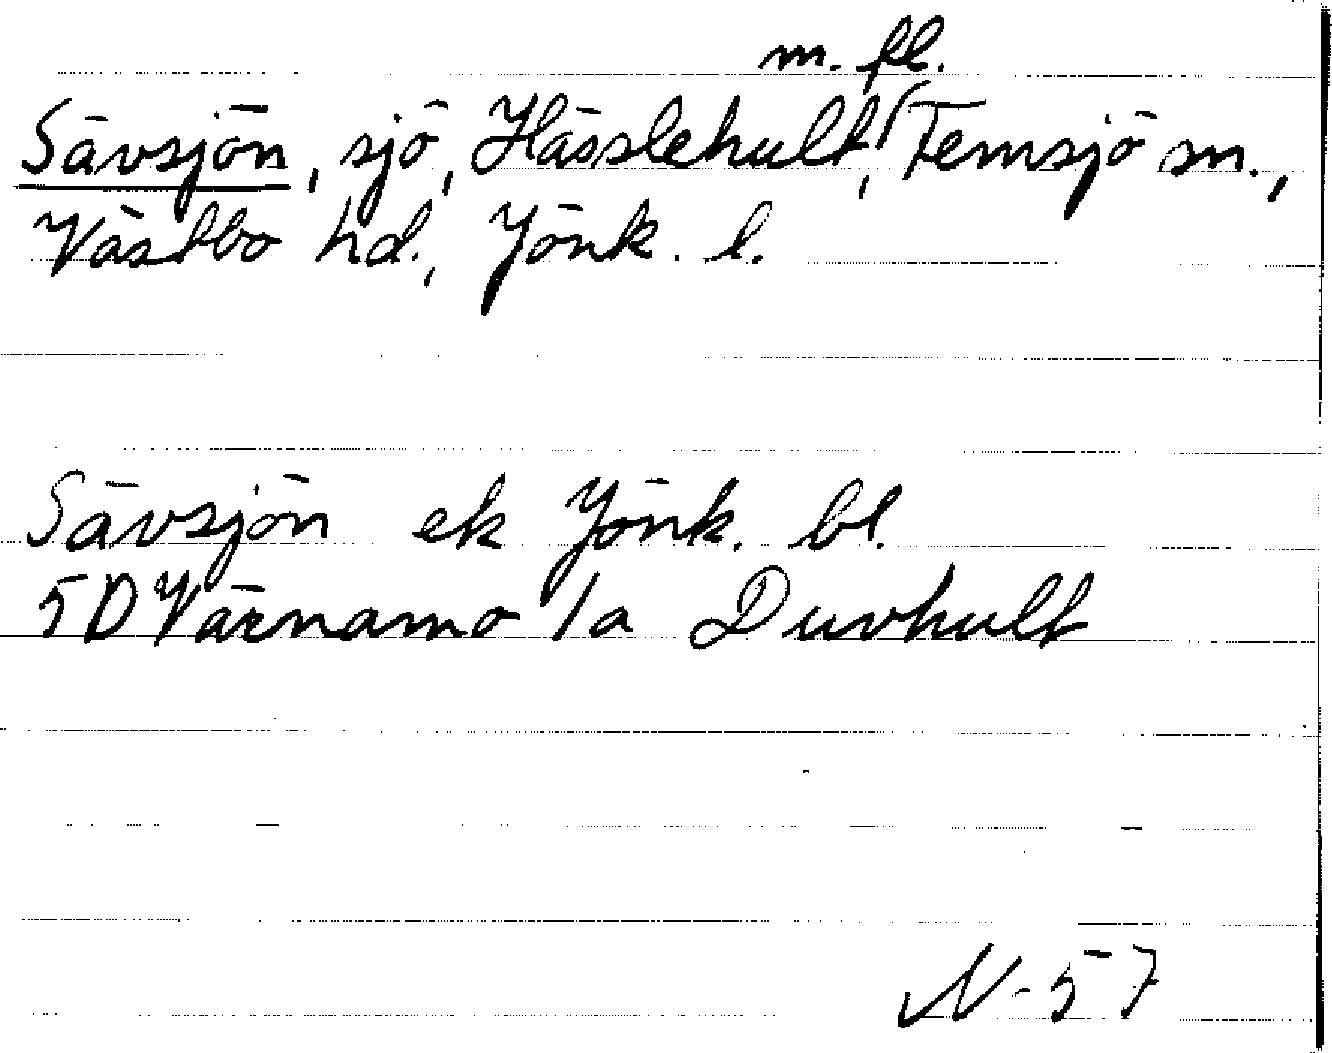 Sävsjön, sjö, Hässlehult, m. fl. Femsjö sn.,
Västbo hd., Jönk. l.
Sävsjön ek Jönk. bl.
5D Värnamo 1a Duvhult
N-57